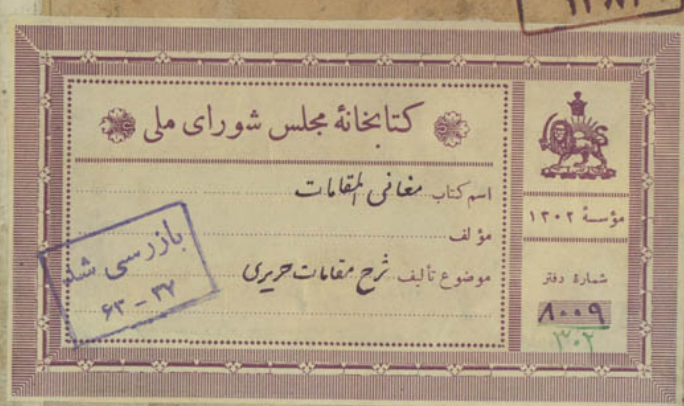 کتابخانهٔ مجلس شورای ملی
اسم کتاب مغانی المقامات
مؤلف
موضوع تألیف شرح مقامات حریری
مؤسسهٔ ۱۳۰۲
شمارهٔ دفتر
۸۰۰۹
۳۰۲
بازرسی شد
۶۳ - ۳۷